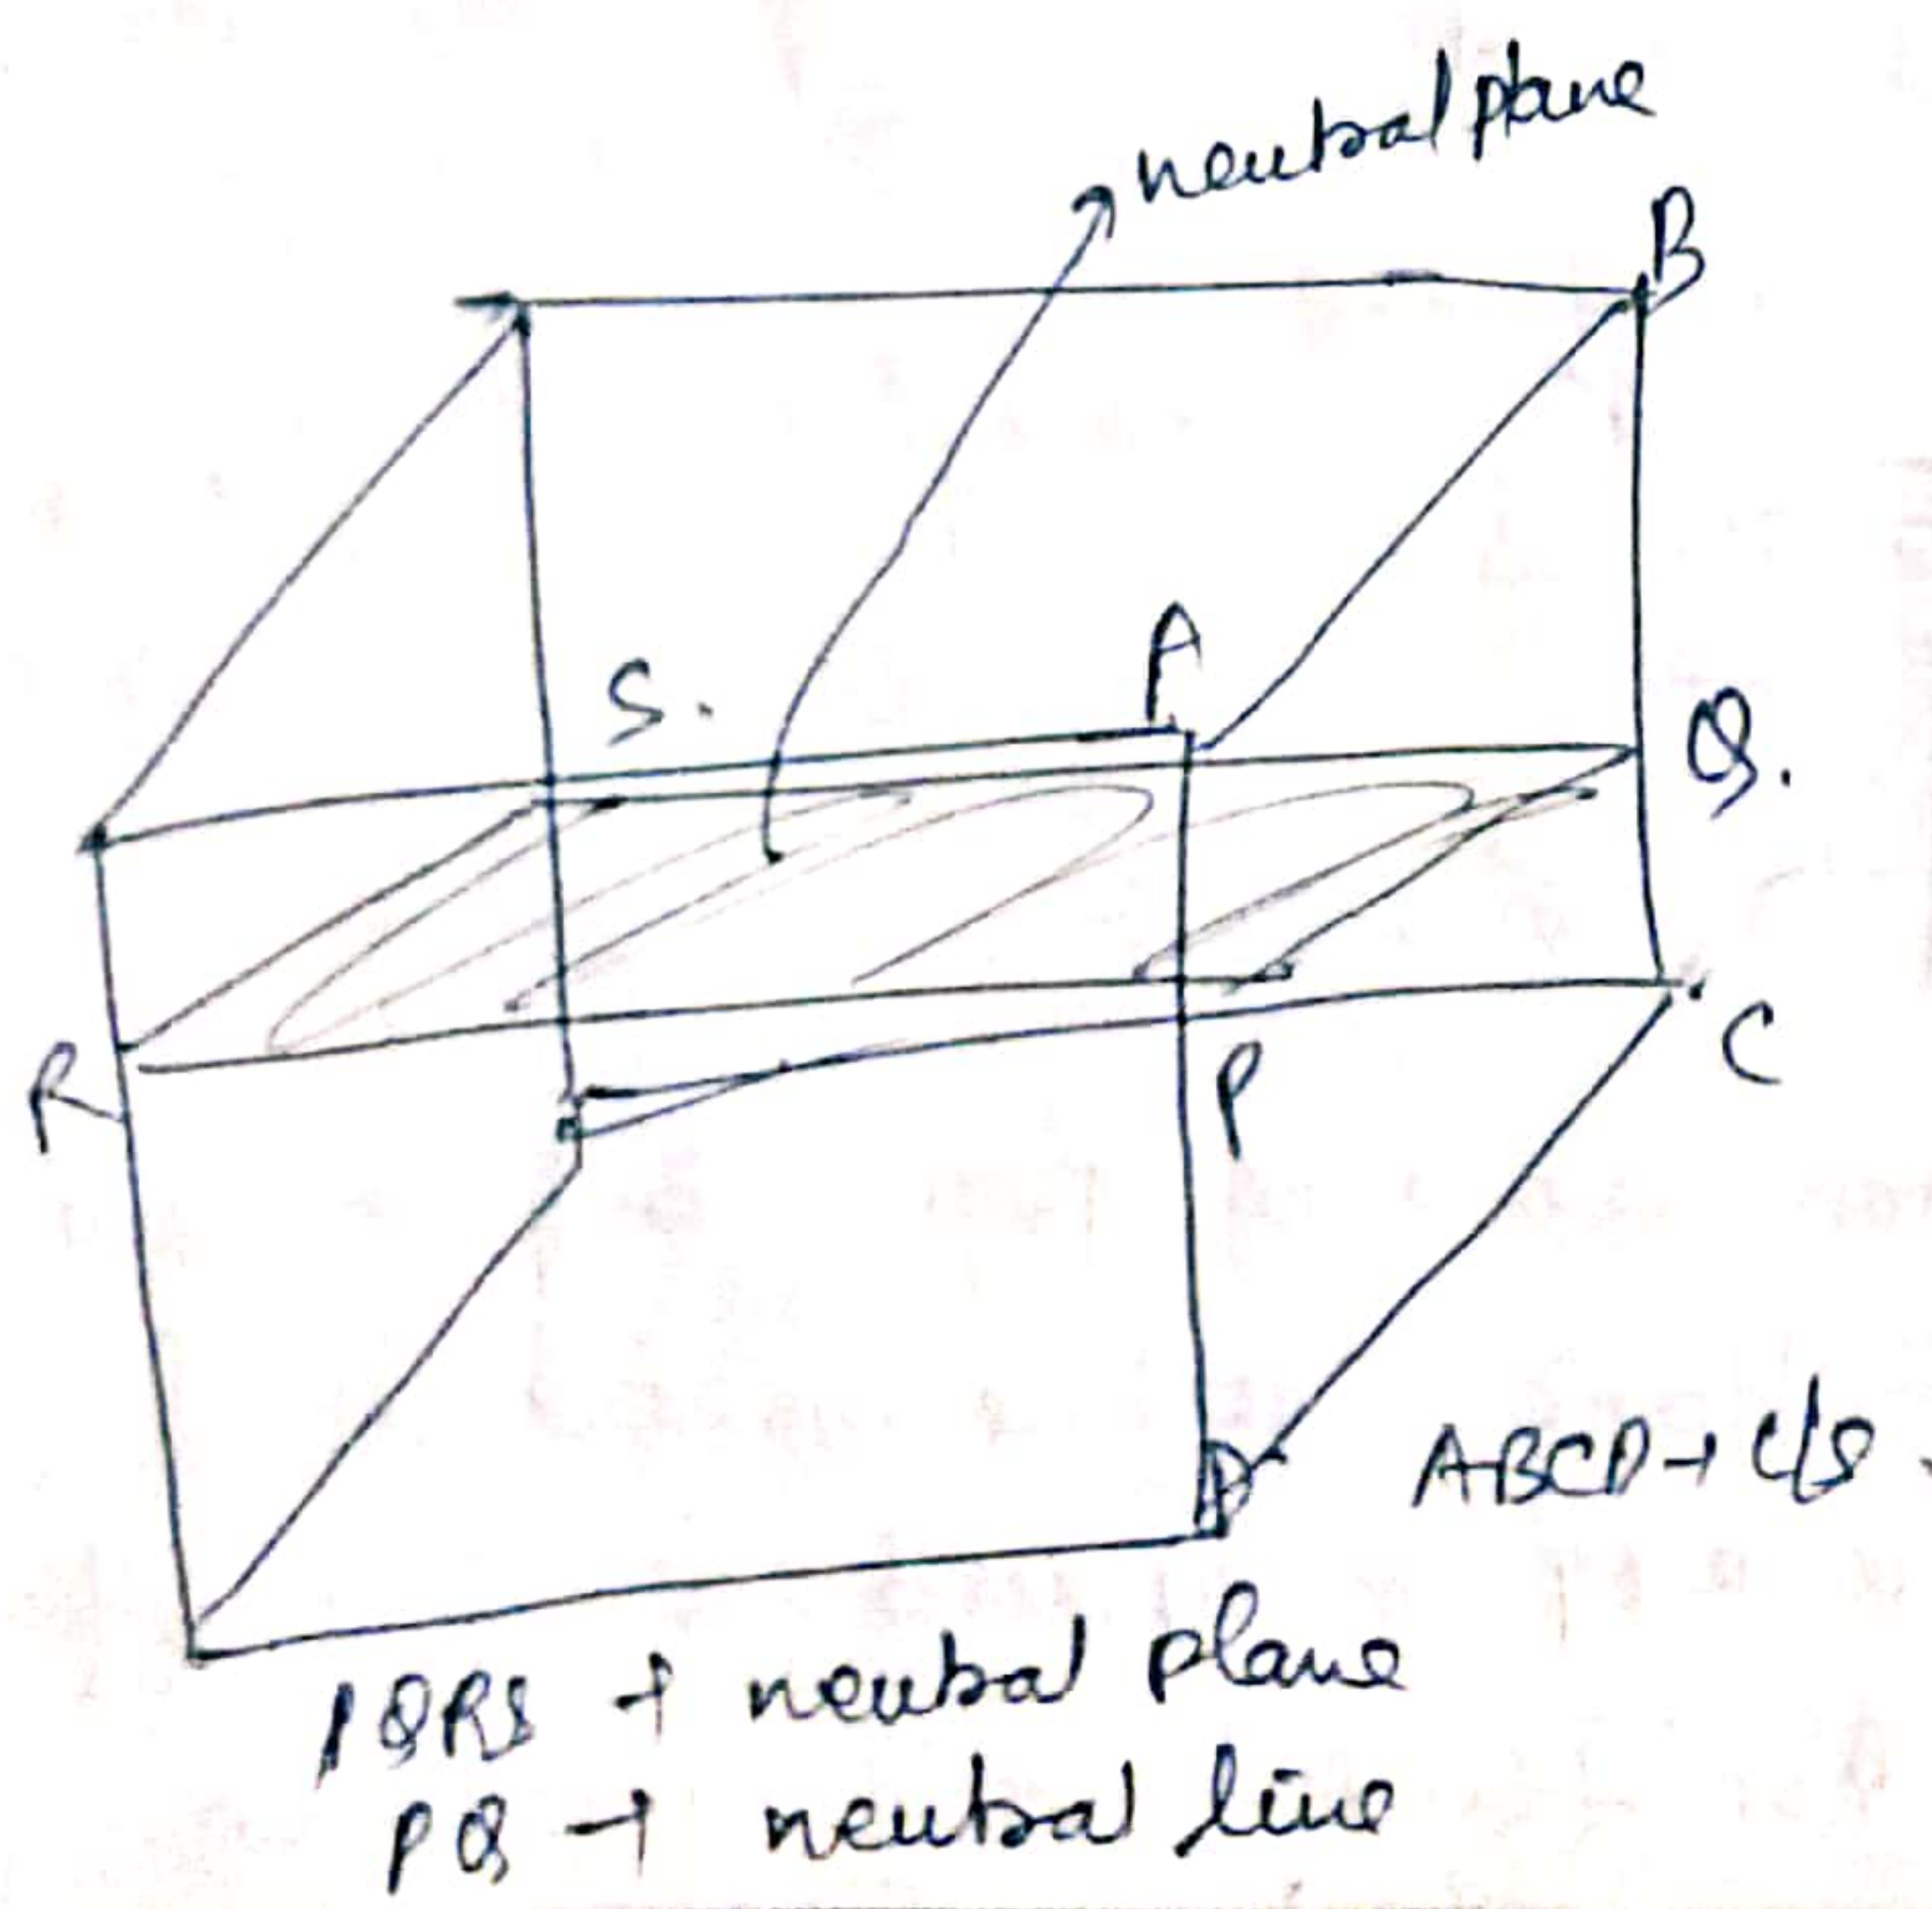 neutral plane
B
S.
A
Q.
R
P
C
D
ABCD → C/S.
PQRS → neutral plane
PQ → neutral line